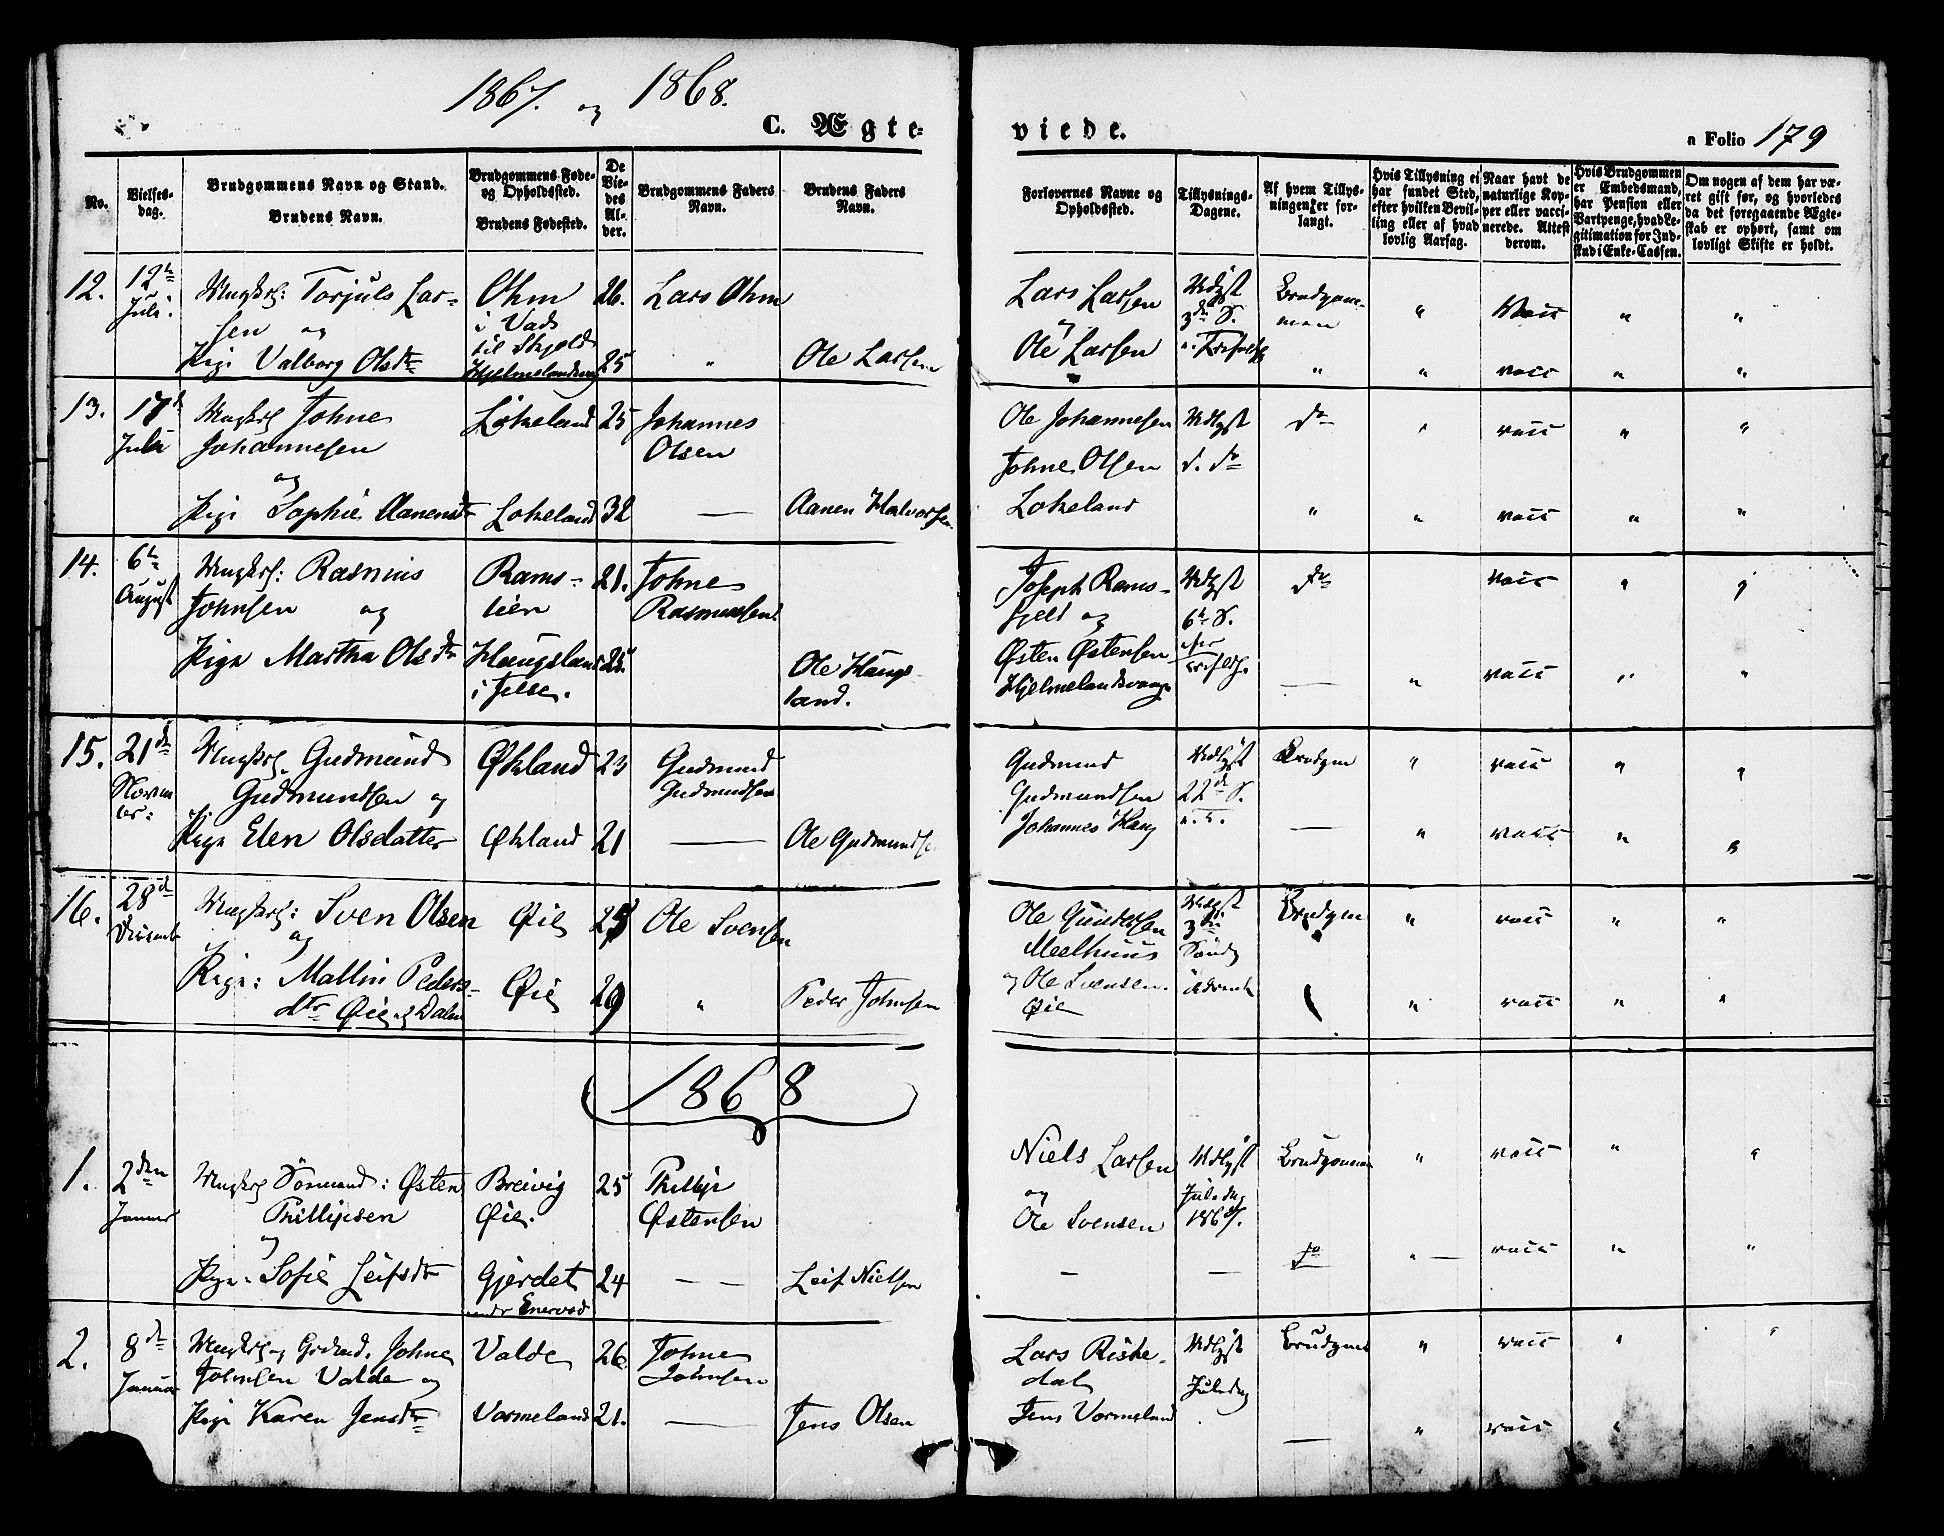 1867. og 1868.
C. Ægteviede.
n Folio 179
No.
Vielsesdag.
Brudgommens Navn og Stand.
Brudens Navn.
Brudgommens Føde- og Opholdssted.
Brudens Fødested.
De Viedes Alder.
Brudgommens Faders Navn.
Brudens Faders Navn.
Forlovernes Navne og Opholdssted.
Tillysnings-Dagene.
Af hvem Tillysningen er forlangt.
Hvis Tillysning ei har fundet Sted, efter hvilken Bevilling eller af hvad lovlig Aarsag.
Naar havt de naturlige Kopper eller vaccinerede. Attest derom.
Hvis Brudgommen er Embedsmand, har Pension eller Vartpenge, hvad Legitimation for Indskud i Enke-Cassen.
Om nogen af dem har været gift før, og hvorledes da det foregaaende Ægteskab er ophørt, samt om lovligt Skifte er holdt.
12. 12te Juli. Ungkrl: Torjuls Larsen og
Ohm i Vads til Skjold
26. Lars Ohm
Lars Larsen og
Udlyst 3die S.
Brudgommen " vacc " "
Pige Valborg Olsdtr
Hjelmelandsvaag
25 " Ole Larsen
Ole Larsen
" " vacc " "
13. 17d Juli
Ungkrl Johne Johannesen
og
Løkeland 25
Johannes Olsen
Ole Johannesen
Johne Olsen
Udlyst d. do
do " vacc " "
Pige Sophie Aanensdtr
Lokeland 32 — Aanen Halvorsen
Lokeland
" " vacc " "
14. 6te August
Ungkrl: Rasmus Johnsen og
Rams-
21. Johne Rasmussen
Joseph Ramsfjeld og
Udlyst 6te S.
do vacc " "
Pige Martha Olsdtr
Haugsland i Jelse.
25. Ole Haugsland.
Østen Østensen
Hjelmelandsvaag
— " vacc " "
15. 21de November:
Ungkrl Gudmund Gudmundsen og
Økland 23
Gudmund Gudmundsen
Gudmund Gudmundsen
Udlyst 22d S.
Brudgm " vacc " "
Pige Elen Olsdatter
Økland 21 — Ole Gudmundse
Johannes Haug
— " vacc " "
16. 28d Decemb
Ungkrl: Sven Olsen
og
Øie 25 Ole Svensen
Ole Gundersen Meelhuus
Udlyst 3die Søndg Advent
Brudgm " vacc " "
Pige: Mallin Pedersdtr Øie af Dalen
Øie 29 " Peder Johnsen
og Ole Svensen. Øie
" vacc " "
1868
1. 2den Januar
Ungkrl Sømand: Østen Phillipsen
og
Breivig Øie.
25 Phillip Østensen
Niels Larsen
og
Udlyst Juledag 1867.
Brudgommen " vacc " "
Pige. Sofie Leifsdtr
Gjerdet under Enervod
24 — — Leif Nielsen
Ole Svensen
— — do " — vacc " "
2. 8de Januar
Ungkrl og Grdmd. Johne Johnsen Valde og
Valde 26. Johne Johnsen
Lars Riskedal
Udlyst Juledag
Brudgm " vacc " "
Pige Karen Jensdtr
Vormeland 21. — Jens Olsen
Jens Vormeland
— " vacc "